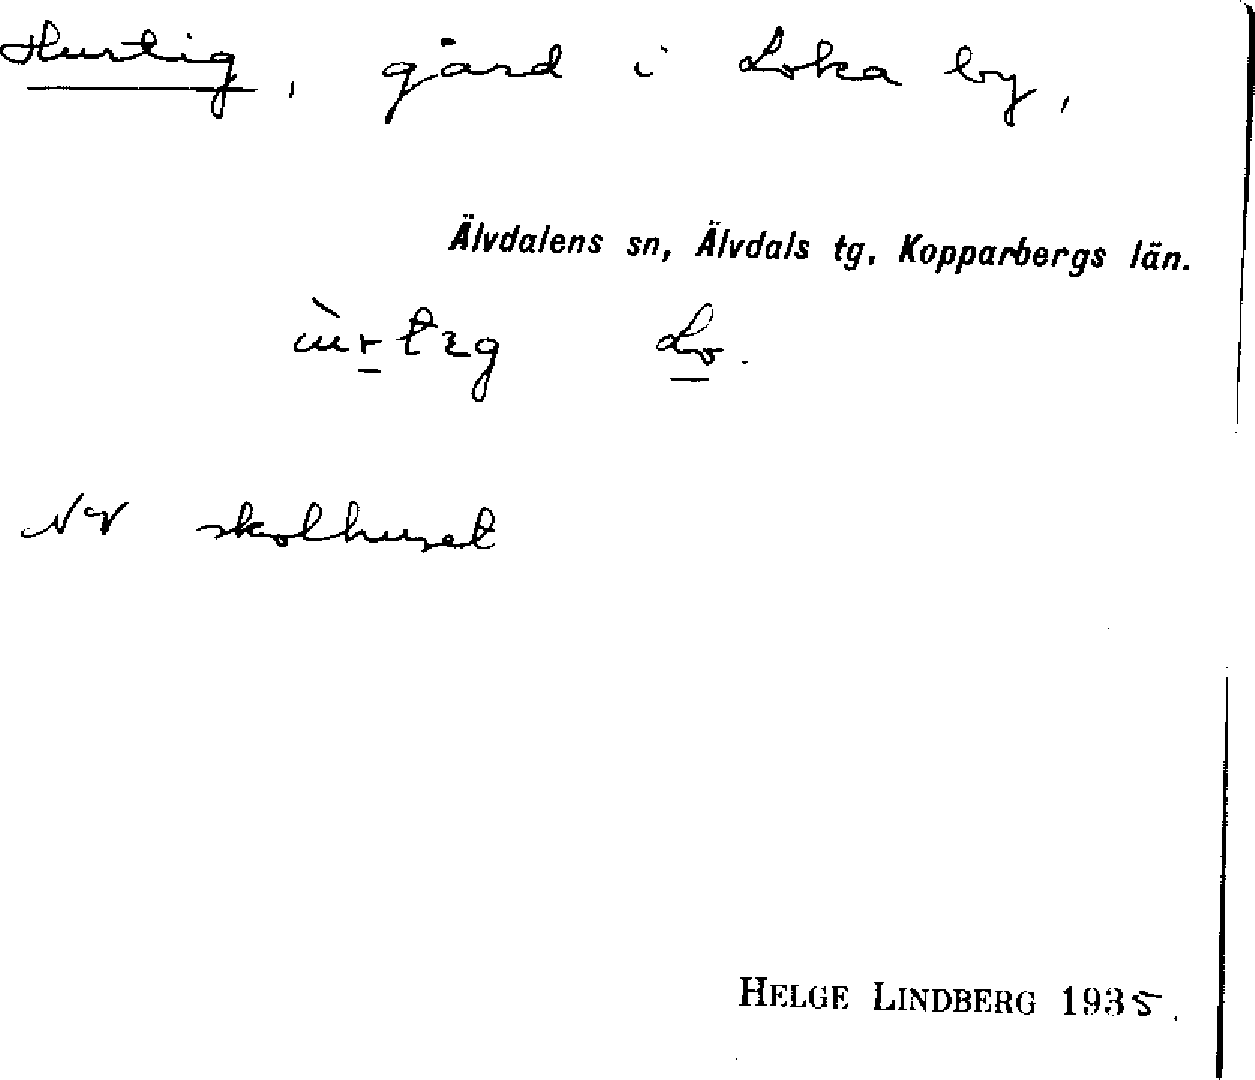 Hurtig, gård i Loka by,
Älvdalens sn, Älvdals tg, Kopparbergs län.
Lo.
NV skolhuset
HELGE LINDBERG 1935.